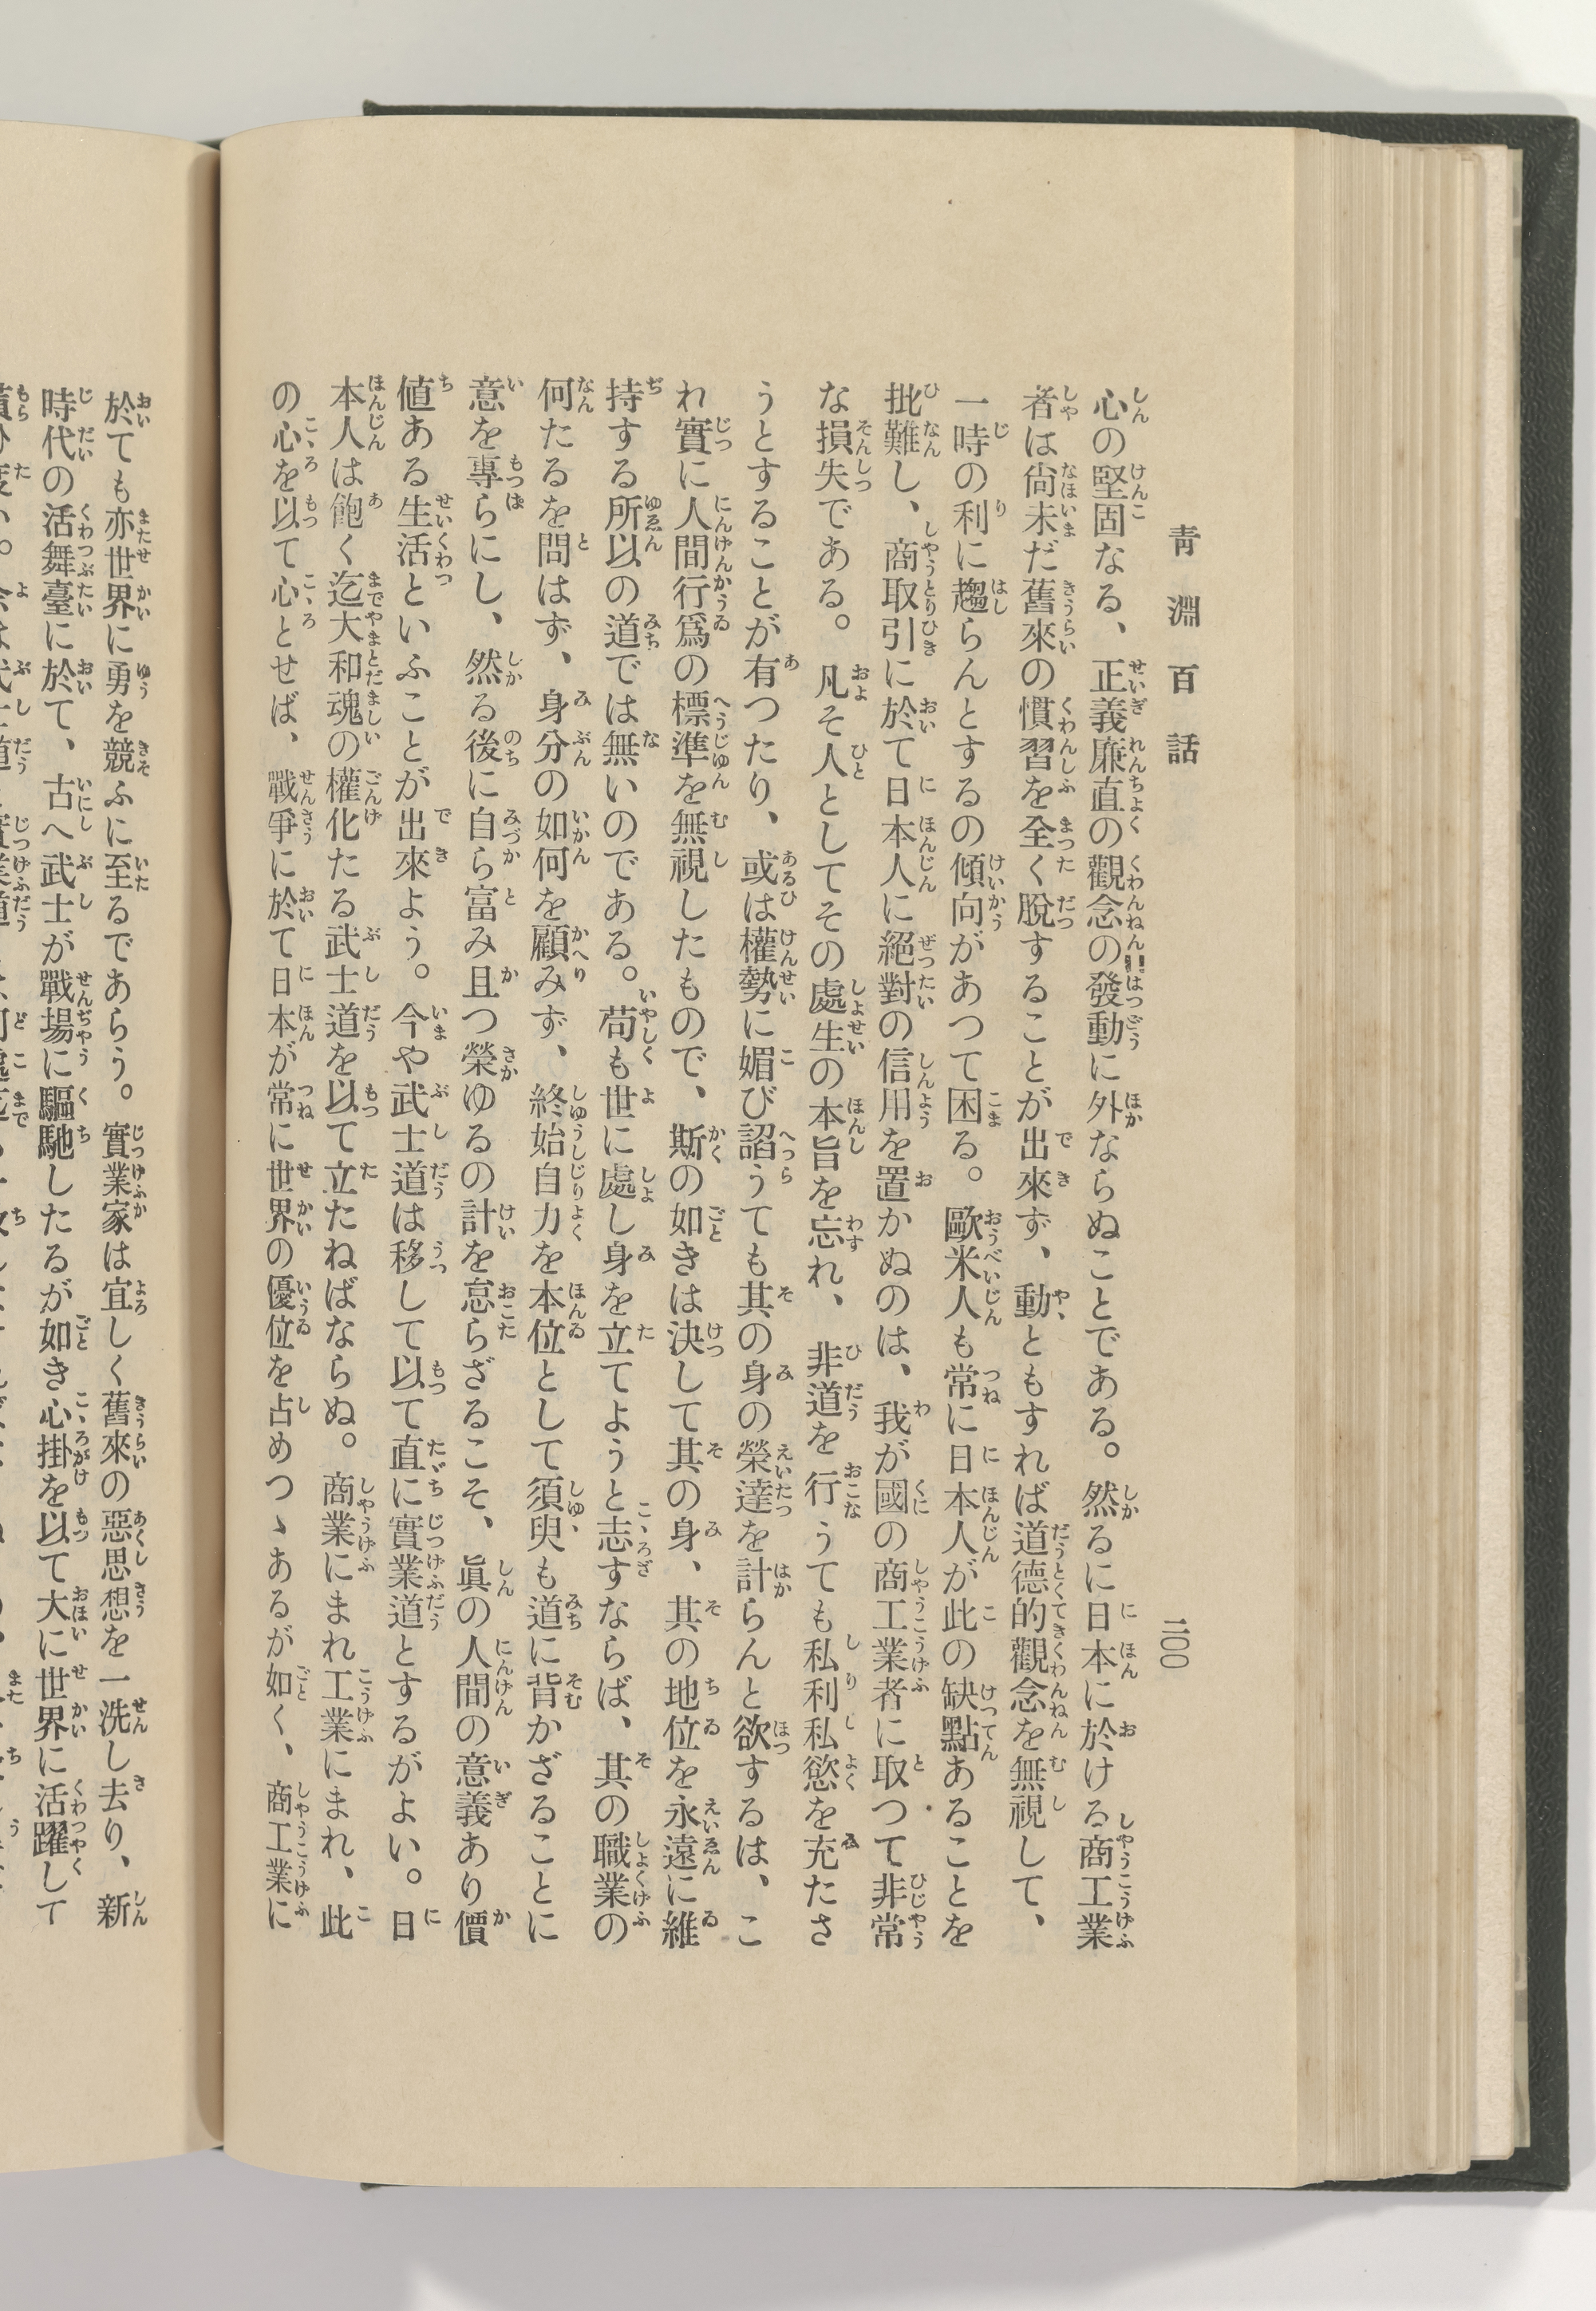 靑淵百話
二〇〇
心の堅固なる、正義廉直の觀念の發動に外ならぬことである。然るに日本に於ける商工業
者は尙未だ舊來の慣習を全く脫することが出來ず、動ともすれば道德的觀念を無視して、
一時の利に趨らんとするの傾向があつて困る。歐米人も常に日本人が此の缺點あることを
批難し、商取引に於て日本人に絕對の信用を置かぬのは、我が國の商工業者に取つて非常
な損失である。凡そ人としてその處生の本旨を忘れ、非道を行うても私利私慾を充たさ
うとすることが有つたり、或は權勢に媚び諂うても其の身の榮達を計らんと欲するは、こ
れ實に人間行爲の標準を無視したもので、斯の如きは決して其の身、其の地位を永遠に維
持する所以の道では無いのである。苟も世に處し身を立てようと志すならば、其の職業の
何たるを問はず、身分の如何を顧みず、終始自力を本位として須臾も道に背かざることに
意を專らにし、然る後に自ら富み且つ榮ゆるの計を怠らざるこそ、眞の人間の意義あり價
値ある生活といふことが出來よう。今や武士道は移して以て直に實業道とするがよい。日
本人は飽く迄大和魂の權化たる武士道を以て立たねばならぬ。商業にまれ工業にまれ、此
の心を以て心とせば、戰爭に於て日本が常に世界の優位を占めつゝあるが如く、商工業に
於ても亦世界に勇を競ふに至るであらう。實業家は宜しく舊來の惡思想を一洗し去り、新
時代の活舞臺に於て、古へ武士が戰場に驅馳したるが如き心掛を以て大に世界に活躍して